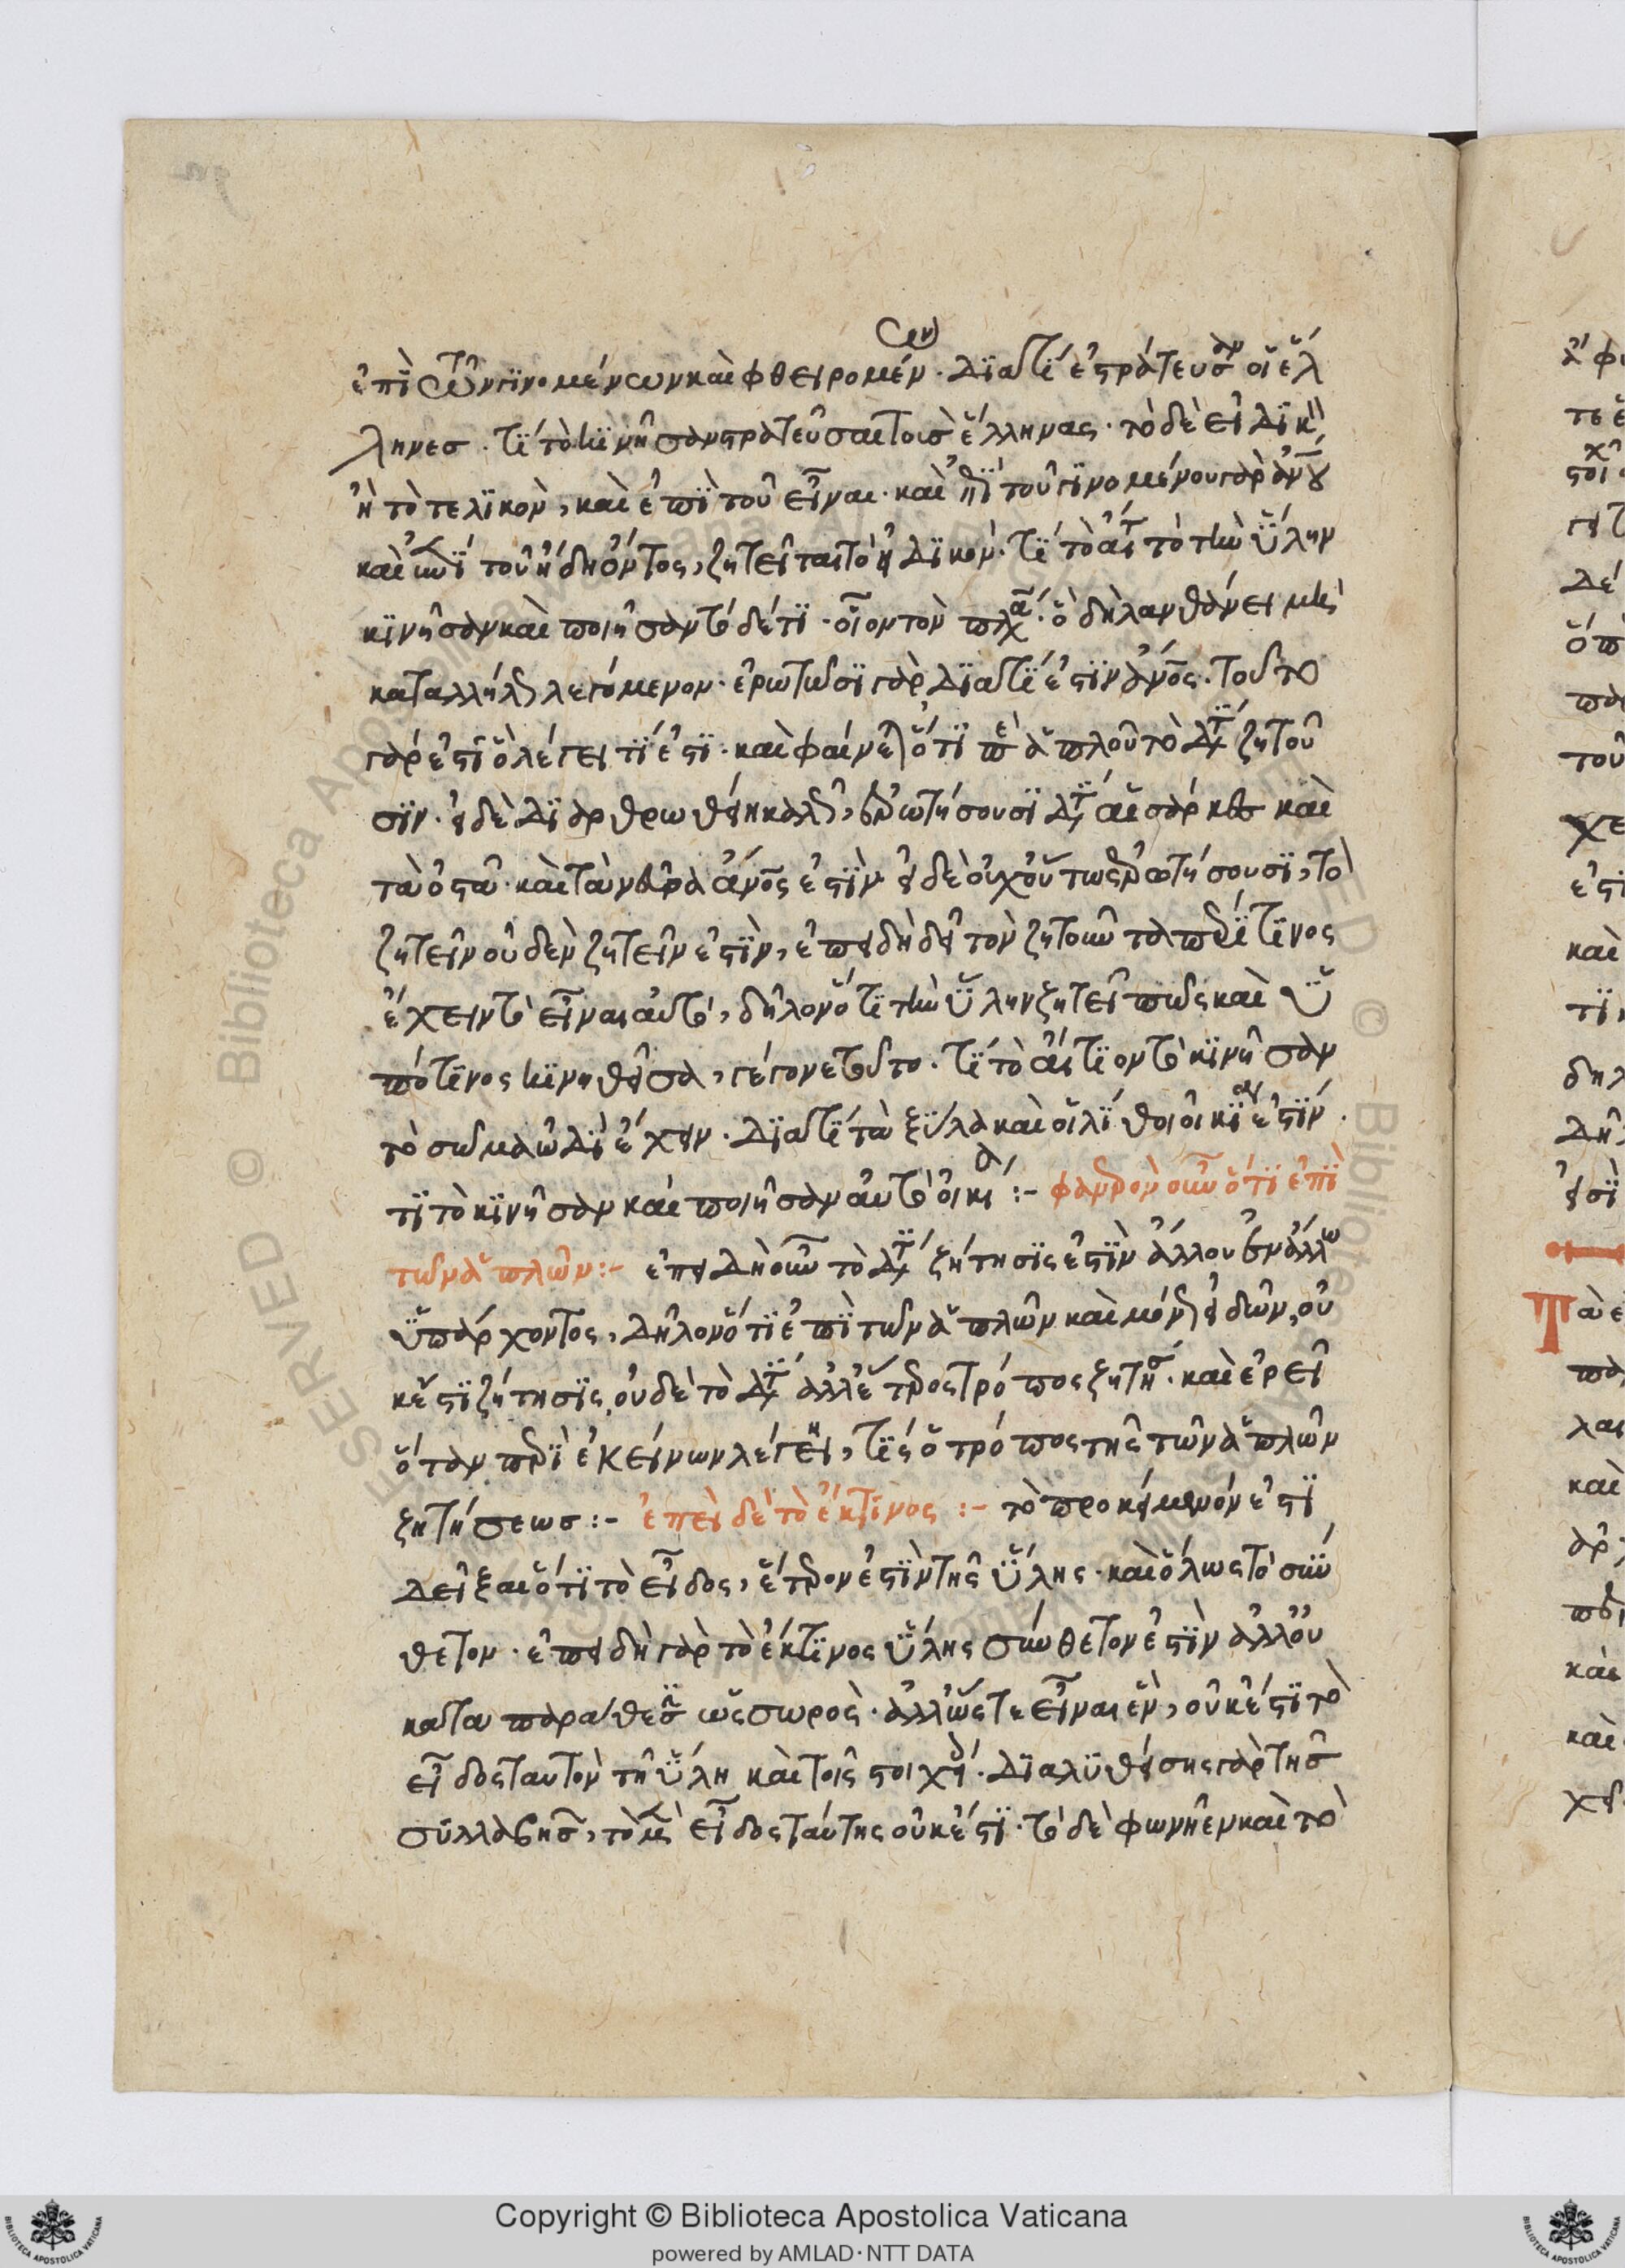 ἐπὶ τῶν γινομένων καὶ φθειρομένων. διατί ἐστράτευσαν οἱ ἕλ
ληνες. τί τὸ κινῆσαν στρατεῦσαι τοὺς ἕλληνας. τὸ δὲ εἰδικὸν
ἢ τὸ τελικὸν, καὶ ἐπὶ τοῦ εἶναι. καὶ ἐπὶ τοῦ γινομένου γὰρ ἀνου
καὶ ἐπὶ τοῦ ἤδη ὄντος, ζητεῖται τὸ εἰδικόν. τί τὸ αἴτιον τὸ τὴν ὕλην
κινῆσαν καὶ ποιῆσαν τόδέ τι. οἷον τὸν ἄ. ὃ δὴ λανθάνει μὴ
καταλλήλως λεγόμενον. ἐρωτῶσι γὰρ διατί ἐστιν ἄνος. τοῦτο
γάρ ἐστι ὃ λέγει τί ἐστι. καὶ φαίνεται ὅτι ἁπλοῦ τὸ διατί ζητοῦ
σιν. εἰ δὲ διαρθρωθείη καλῶς, ἐρωτήσουσι διατί αἱ σάρκες καὶ
τὰ ὀστᾶ καὶ τὰ νεῦρα ἄνος ἐστίν εἰ δὲ οὐχ οὕτως ἐρωτήσουσι, τὸ
ζητεῖν οὐδὲν ζητεῖν ἐστιν, ἐπειδὴ δεῖ τὸν ζητοῦντα περί τινος
ἔχειν τὸ εἶναι αὐτὸ, δῆλον ὅτι τὴν ὕλην ζητεῖ πῶς καὶ ὑ
πό τινος κινηθεῖσα, γέγονε τοῦτο. τί τὸ αἴτιον τὸ κινῆσαν
τὸ σῶμα ὡδὶ ἔχειν. διατί τὰ ξύλα καὶ οἱ λίθοι οἰκία ἐστίν.
τί τὸ κινῆσαν καὶ ποιῆσαν αὐτὸ οἰκία :- φανερὸν οὖν ὅτι ἐπὶ
τῶν ἁπλῶν :- ἐπειδὴ οὖν τὸ διατί ζήτησις ἐστὶν ἄλλου ἐν ἄλλω
ὑπάρχοντος, δῆλον ὅτι ἐπὶ τῶν ἁπλῶν καὶ μόνων εἰδῶν, οὐ
κ ἔστι ζήτησις, οὐδὲ τὸ διατί ἀλλ ἕτερος τρόπος ζητήσεως. καὶ ἐρεῖ
ὅταν περὶ ἐκείνων λέγη, τίς ὁ τρόπος τῆς τῶν ἁπλῶν
ζητήσεως :- ἐπεὶ δὲ τὸ ἔκ τινος :- τὸ προκείμενόν ἐστι
δεῖξαι ὅτι τὸ εἶδος, ἕτερον ἐστὶν τῆς ὕλης. καὶ ὅλως τὸ σύν
θετον. ἐπειδὴ γὰρ τὸ ἔκ τινος ὕλης σύνθετον ἐστὶν ἀλλ οὐ
κατὰ παράθεσιν ὡς σωρὸς. ἀλλ ὥστε εἶναι ἓν, οὐκ ἔστι τὸ
εἶδος ταυτὸν τῆ ὕλη καὶ τοῖς στοιχείοις. διαλυθείσης γὰρ τῆς
συλλαβῆς, τὸ μὲν εἶδος ταύτης οὐκ ἔστι. τὸ δὲ φωνῆεν καὶ τὸ
Copyright © Biblioteca Apostolica Vaticana
powered by AMLAD·NTT DATA